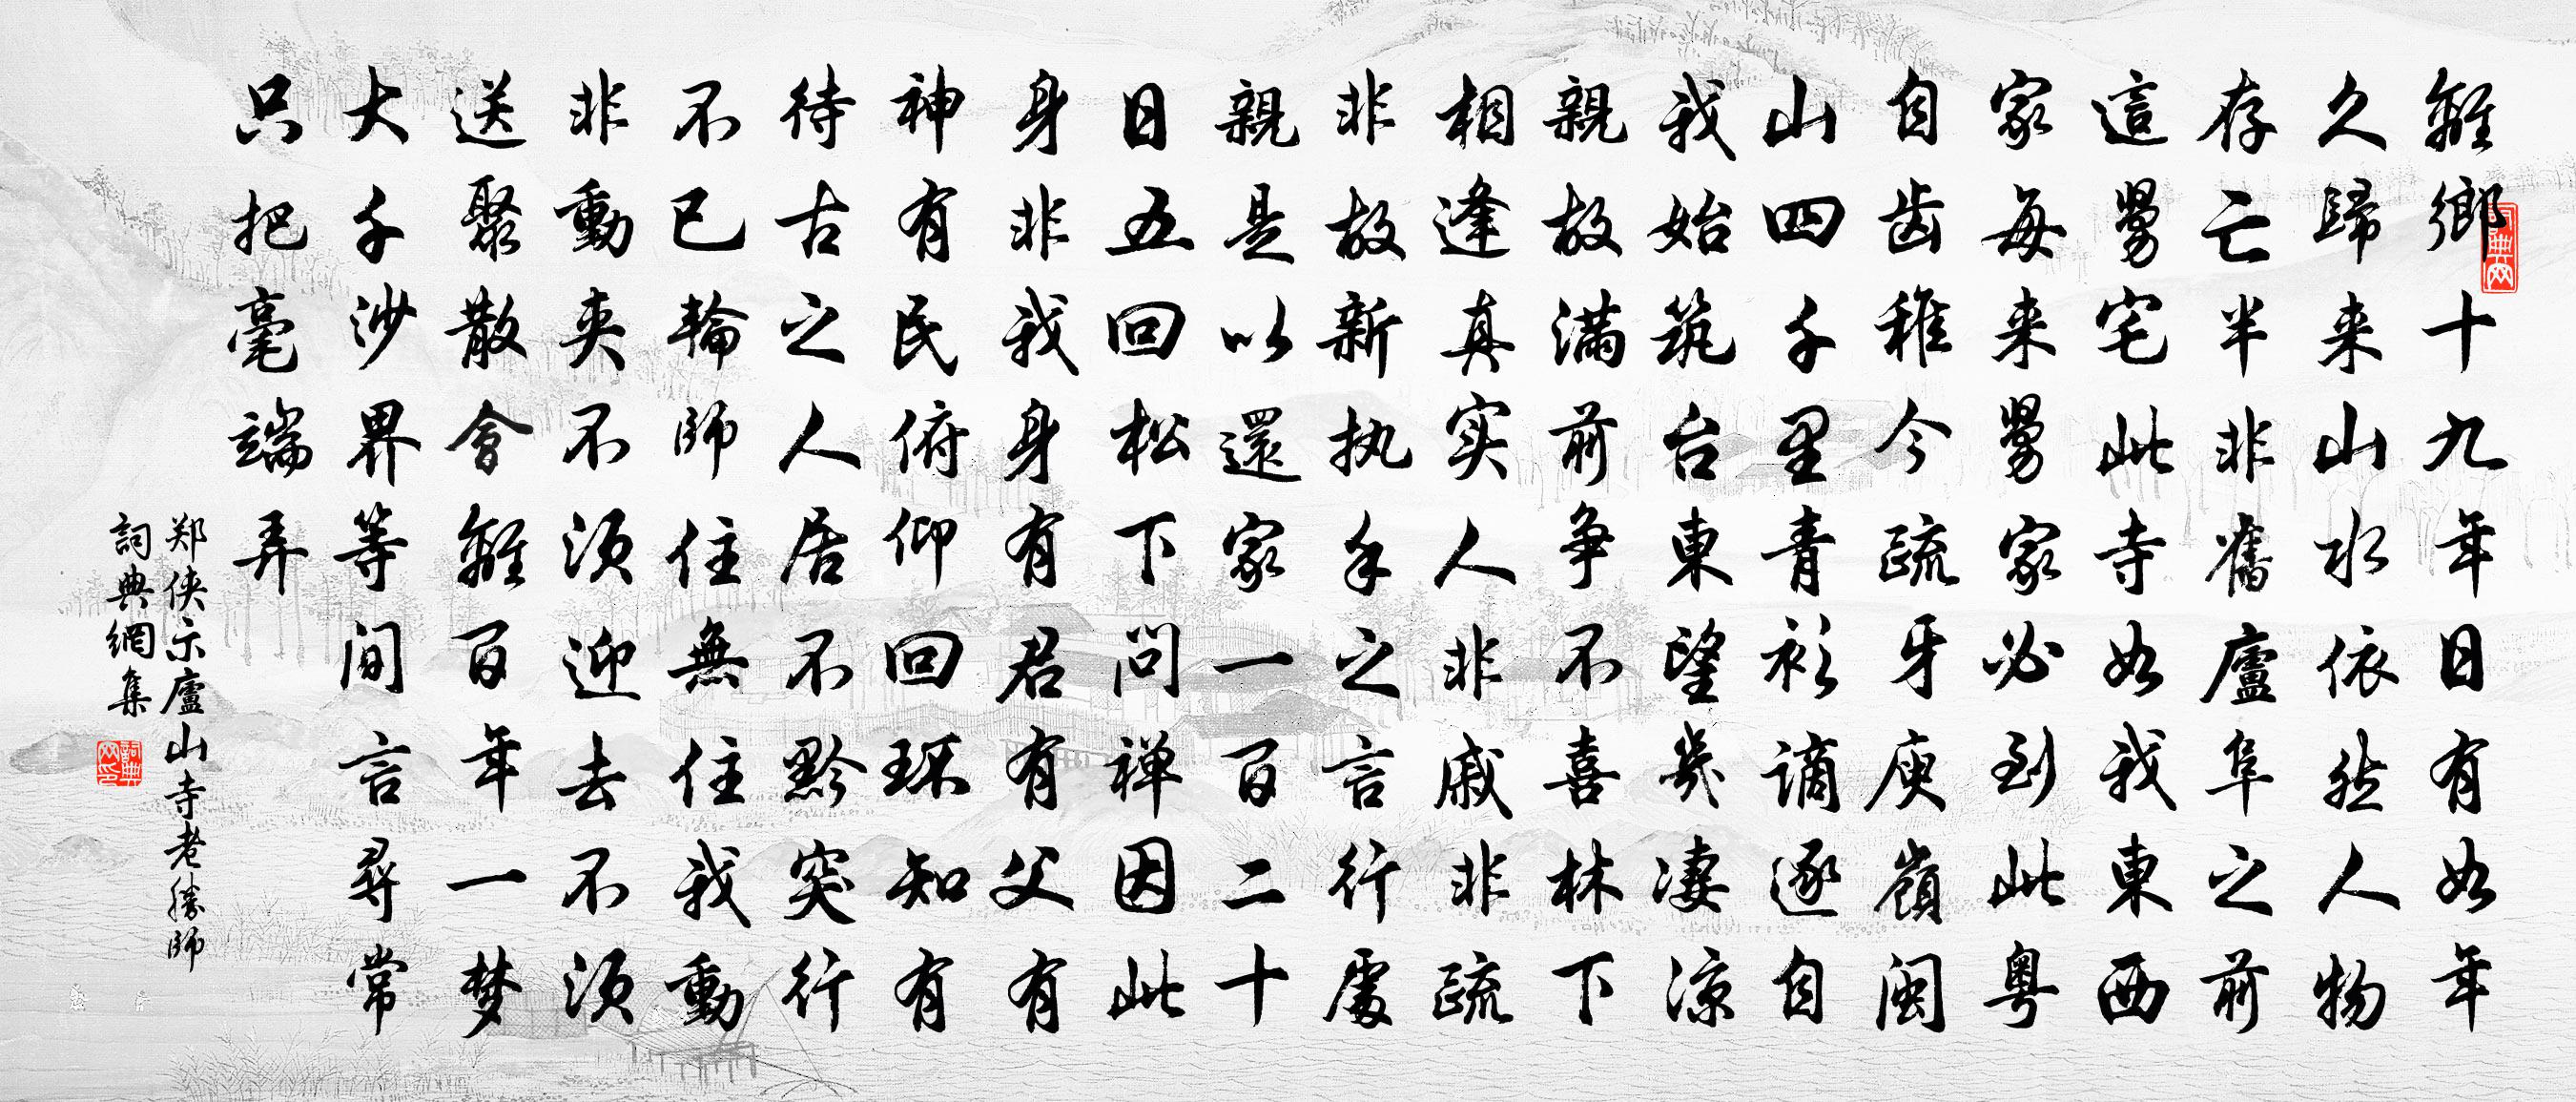 離鄉十九年日有如年
久歸来山水依然人物
存亡半非舊廬阜之前
這舅宅此寺如我東西
家每来舅家必到此粤
自齿稚今疏牙庾嶺闽
山四千里青衫谪逐自
我始筑台東望幾凄凉
親故满前争不喜林下
相逢真实人非戚非疏
非故新执手之言行處
親是以還家一百二十
日五回松下問禅因此
身非我身有君有父有
神有民俯仰回环知有
待古之人居不黔突行
不已輪師住無住我動
非動来不须迎去不须
送聚散會離百年一梦
大千沙界等閒言尋常
只把毫端弄
郑侠示廬山寺老勝師
詞典網集